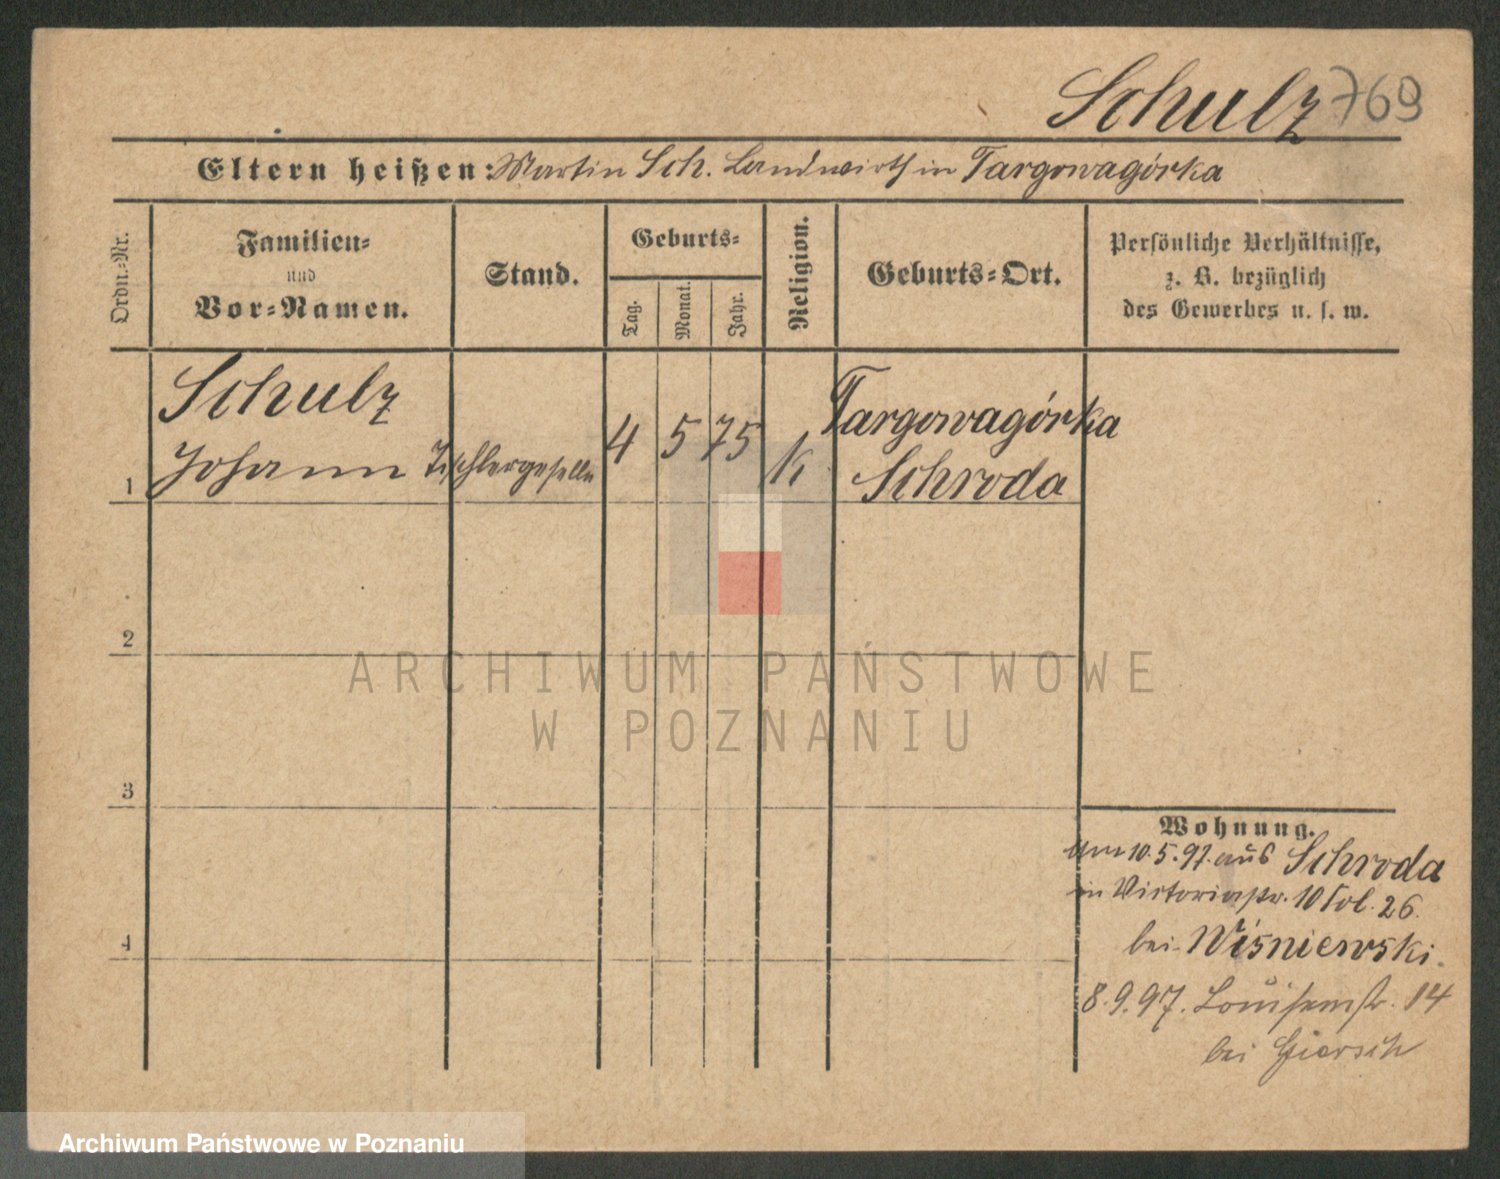 Schulz 769
Eltern heißen: Martin Sch. Landwirth in Targowagórka
Ordn.-Nr.
Familien-
und
Vor-Namen.
Stand.
Geburts-
Tag.
Monat.
Jahr.
Religion.
Geburts-Ort.
Persönliche Verhältnisse,
z. B. bezüglich
des Gewerbes u. s. w.
Schulz
Johann Tischlergeselle
4 5 75 k
Targowagórka
Schroda
1
2
3
4
Wohnung.
Am 10.5.97. aus Schroda
in Victoriastr. 10 Fol. 26.
bei Wiśniewski.
8.9.97. Louisenstr. 14
bei Giersch
ARCHIWUM PAŃSTWOWE
W POZNANIU
Archiwum Państwowe w Poznaniu